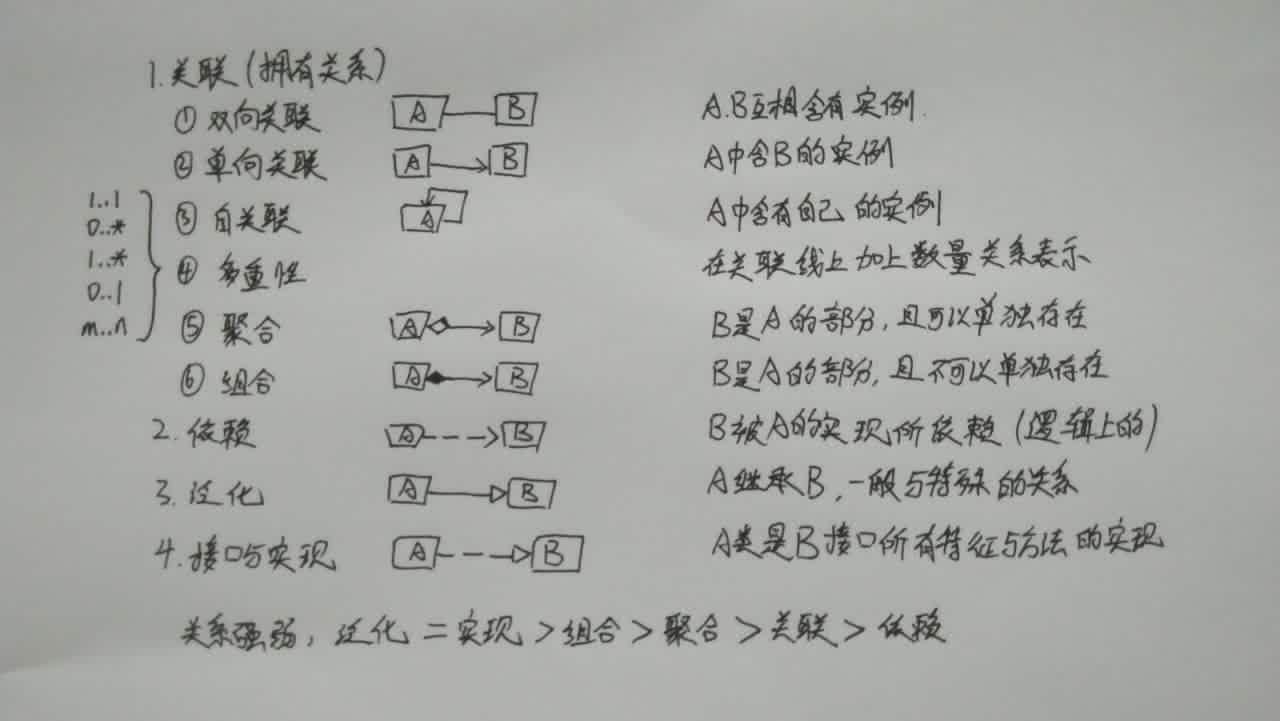 1.关联(拥有关系)
① 双向关联 A B A.B互相含有实例.
② 单向关联 A B A中含B的实例
1..1
③ 自关联 A A中含有自己的实例
0..*
1..*
④ 多重性 在关联线上加上数量关系表示
0..1
m..n
⑤ 聚合 A B B是A的部分,且可以单独存在
⑥ 组合 A B B是A的部分,且不可以单独存在
2.依赖 A B B被A的实现所依赖(逻辑上的)
3.泛化 A B A继承B,一般与特殊的关系
4.接口与实现 A B A类是B接口所有特征与方法的实现
关系强弱, 泛化=实现>组合>聚合>关联>依赖